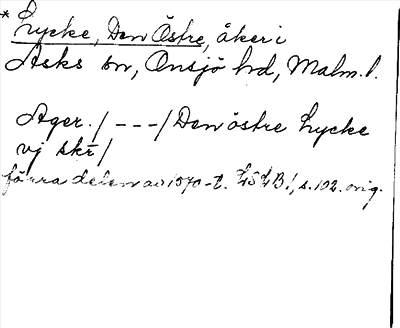 * Lycke, Den Östre, åker i
Asks sn, Onsjö hd, Malm. l.
Ager. / - - - / Den östre Lycke
vj skr /
förra delen av 1570-t. LSLB 1, s. 192. orig.